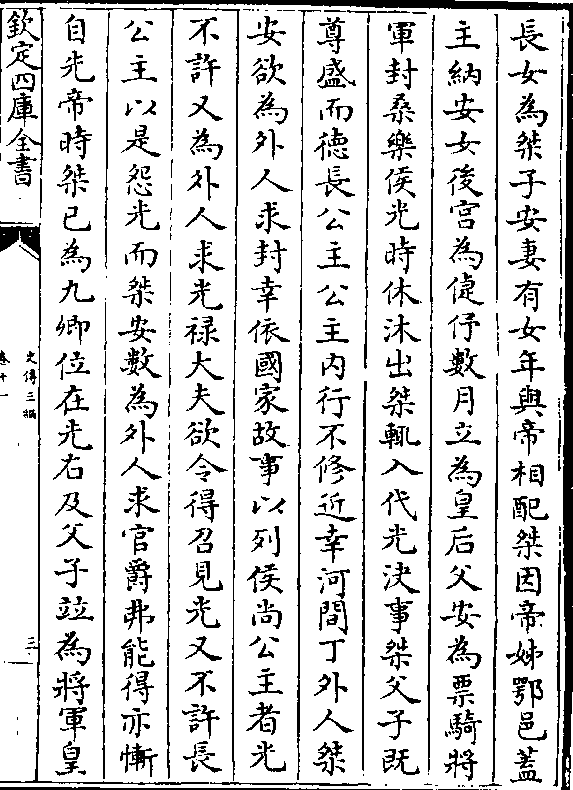 長女為桀子安妻有女年與帝相配桀因帝姊鄂邑蓋
主納安女後宮為倢伃數月立為皇后父安為票騎將
軍封桑樂侯光時休沐出桀輒入代光決事桀父子既
尊盛而德長公主公主內行不修近幸河間丁外人桀
安欲為外人求封幸依國家故事以列侯尚公主者光
不許又為外人求光祿大夫欲令得召見光又不許長
公主以是怨光而桀安數為外人求官爵弗能得亦慚
自先帝時桀已為九卿位在光右及父子竝為將軍皇
欽定四庫全書
史傳三編
卷十一
三